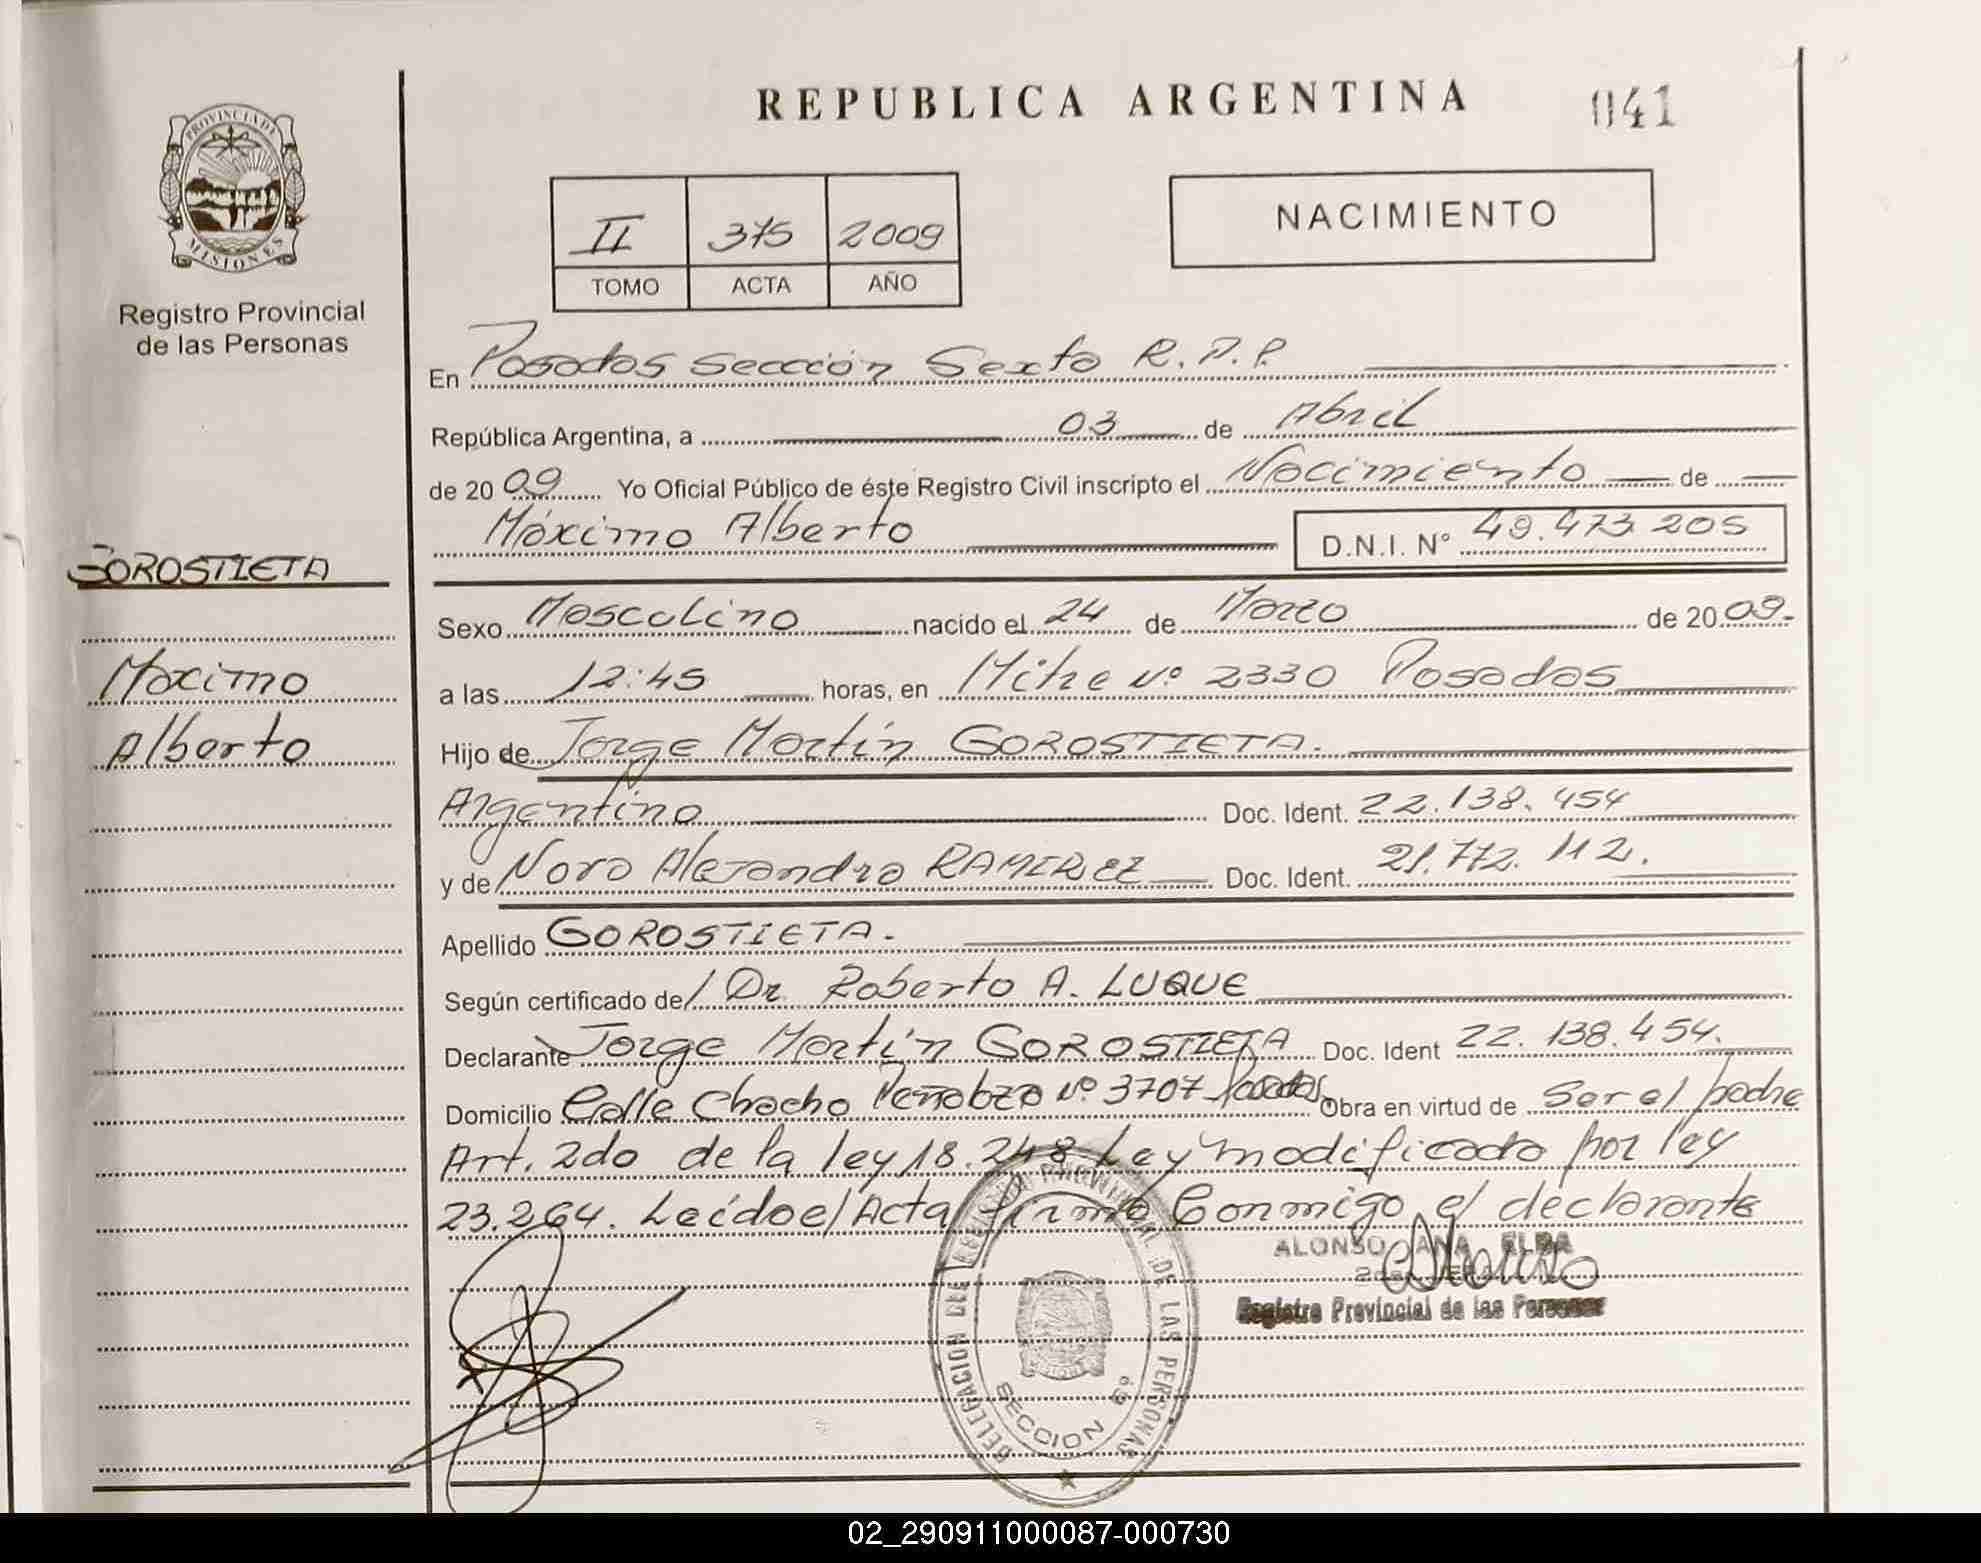 REPUBLICA ARGENTINA
041
PROVINCIA DE
MISIONES
Registro Provincial
de las Personas
II 375 2009
TOMO ACTA AÑO
NACIMIENTO
En Posadas Sección Sexta R.P.P.
República Argentina, a 03 de Abril
de 2009 Yo Oficial Público de éste Registro Civil inscripto el Nacimiento de
Máximo Alberto D.N.I. N° 49.473.205
GOROSTIETA
Sexo Masculino nacido el 24 de Marzo de 2009.
Maximo
a las 12:45 horas, en Mitre Nº 2330 Posadas
Alberto
Hijo de Jorge Martín GOROSTIETA.
Argentino Doc. Ident. 22.138.454
y de Nora Alejandra RAMIREZ Doc. Ident. 21.772.112.
Apellido GOROSTIETA.
Según certificado de/ Dr. Roberto A. LUQUE
Declarante Jorge Martín GOROSTIETA Doc. Ident 22.138.454.
Domicilio Calle Chacho Peñaloza Nº 3707 Posadas Obra en virtud de Ser el padre
Art. 2do de la ley 18.248 Ley modificada por ley
23.264. Leída el Acta firma Conmigo el declarante
ALONSO ANA ELBA
Registro Provincial de las Personas
DELEGACION DEL REGISTRO PROVINCIAL DE LAS PERSONAS
SECCION 6a
02_290911000087-000730